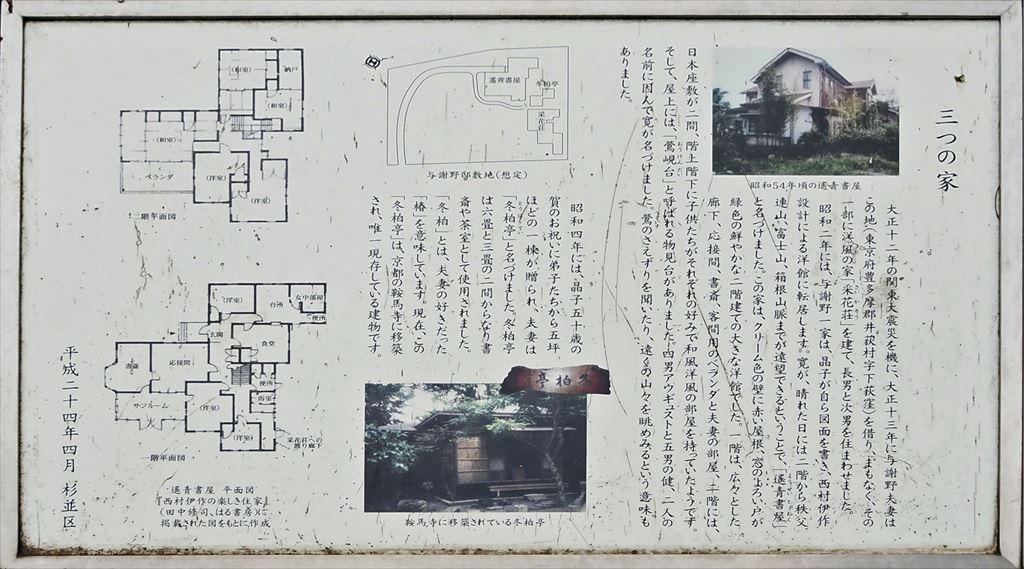 三つの家
大正十二年の関東大震災を機に、大正十三年に与謝野夫妻は
この地(東京府豊多摩郡井荻村字下荻窪)を借り、まもなく、その
一部に洋風の家「采花荘」を建て、長男と次男を住まわせました。
昭和二年には、与謝野一家は、晶子が自ら図面を書き、西村伊作
設計による洋館に転居します。寛が、晴れた日には二階から秩父
連山、富士山、箱根山脈までが遠望できるということで、「遙青書屋」
と名づけました。この家は、クリーム色の壁に赤い屋根、窓のよろい戸が
緑色の鮮やかな二階建ての大きな洋館でした。一階は、広々とした
廊下、応接間、書斎、客間用のベランダと夫妻の部屋、二階には、
日本座敷が二間、階上階下に子供たちがそれぞれの好みで和風洋風の部屋を持っていたようです。
そして、屋上には、「鶯峴台」と呼ばれる物見台がありました。四男アウギュストと五男の健、二人の
名前に因んで寛が名づけました。鶯のさえずりを聞いたり、遠くの山々を眺めみるという意味も
ありました。
昭和54年頃の遙青書屋
昭和四年には、晶子五十歳の
賀のお祝いに弟子たちから五坪
ほどの一棟が贈られ、夫妻は
「冬柏亭」と名づけました。冬柏亭
は六畳と三畳の二間からなり書
斎や茶室として使用されました。
「冬柏」とは、夫妻の好きだった
「椿」を意味しています。現在、この
「冬柏亭」は、京都の鞍馬寺に移築
され、唯一現存している建物です。
冬柏亭
鞍馬寺に移築されている冬柏亭
遙青書屋
冬柏亭
采花荘
与謝野邸敷地(想定)
(和室)
納戸
(和室)
(和室)
ベランダ
(洋室)
(洋室)
二階平面図
(洋室)
台所
女中部屋
便所
玄関
食堂
書斎
応接間
サンルーム
(洋室)
便所
浴室
(洋室)
采花荘への
渡り廊下
一階平面図
遙青書屋 平面図
『西村伊作の楽しき住家』
(田中修司、はる書房)に
掲載された図をもとに作成
平成二十四年四月 杉並区